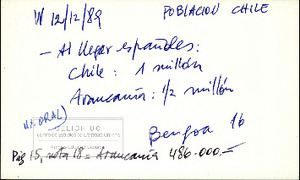 W 12/12/89
POBLACION CHILE
- Al llegar españoles:
Chile: 1 millón
Araucanía: 1/2 millón
(MORAL)
Bengoa 16
CELICH UC
Pág 15, nota 18 = Araucanía 486.000.-